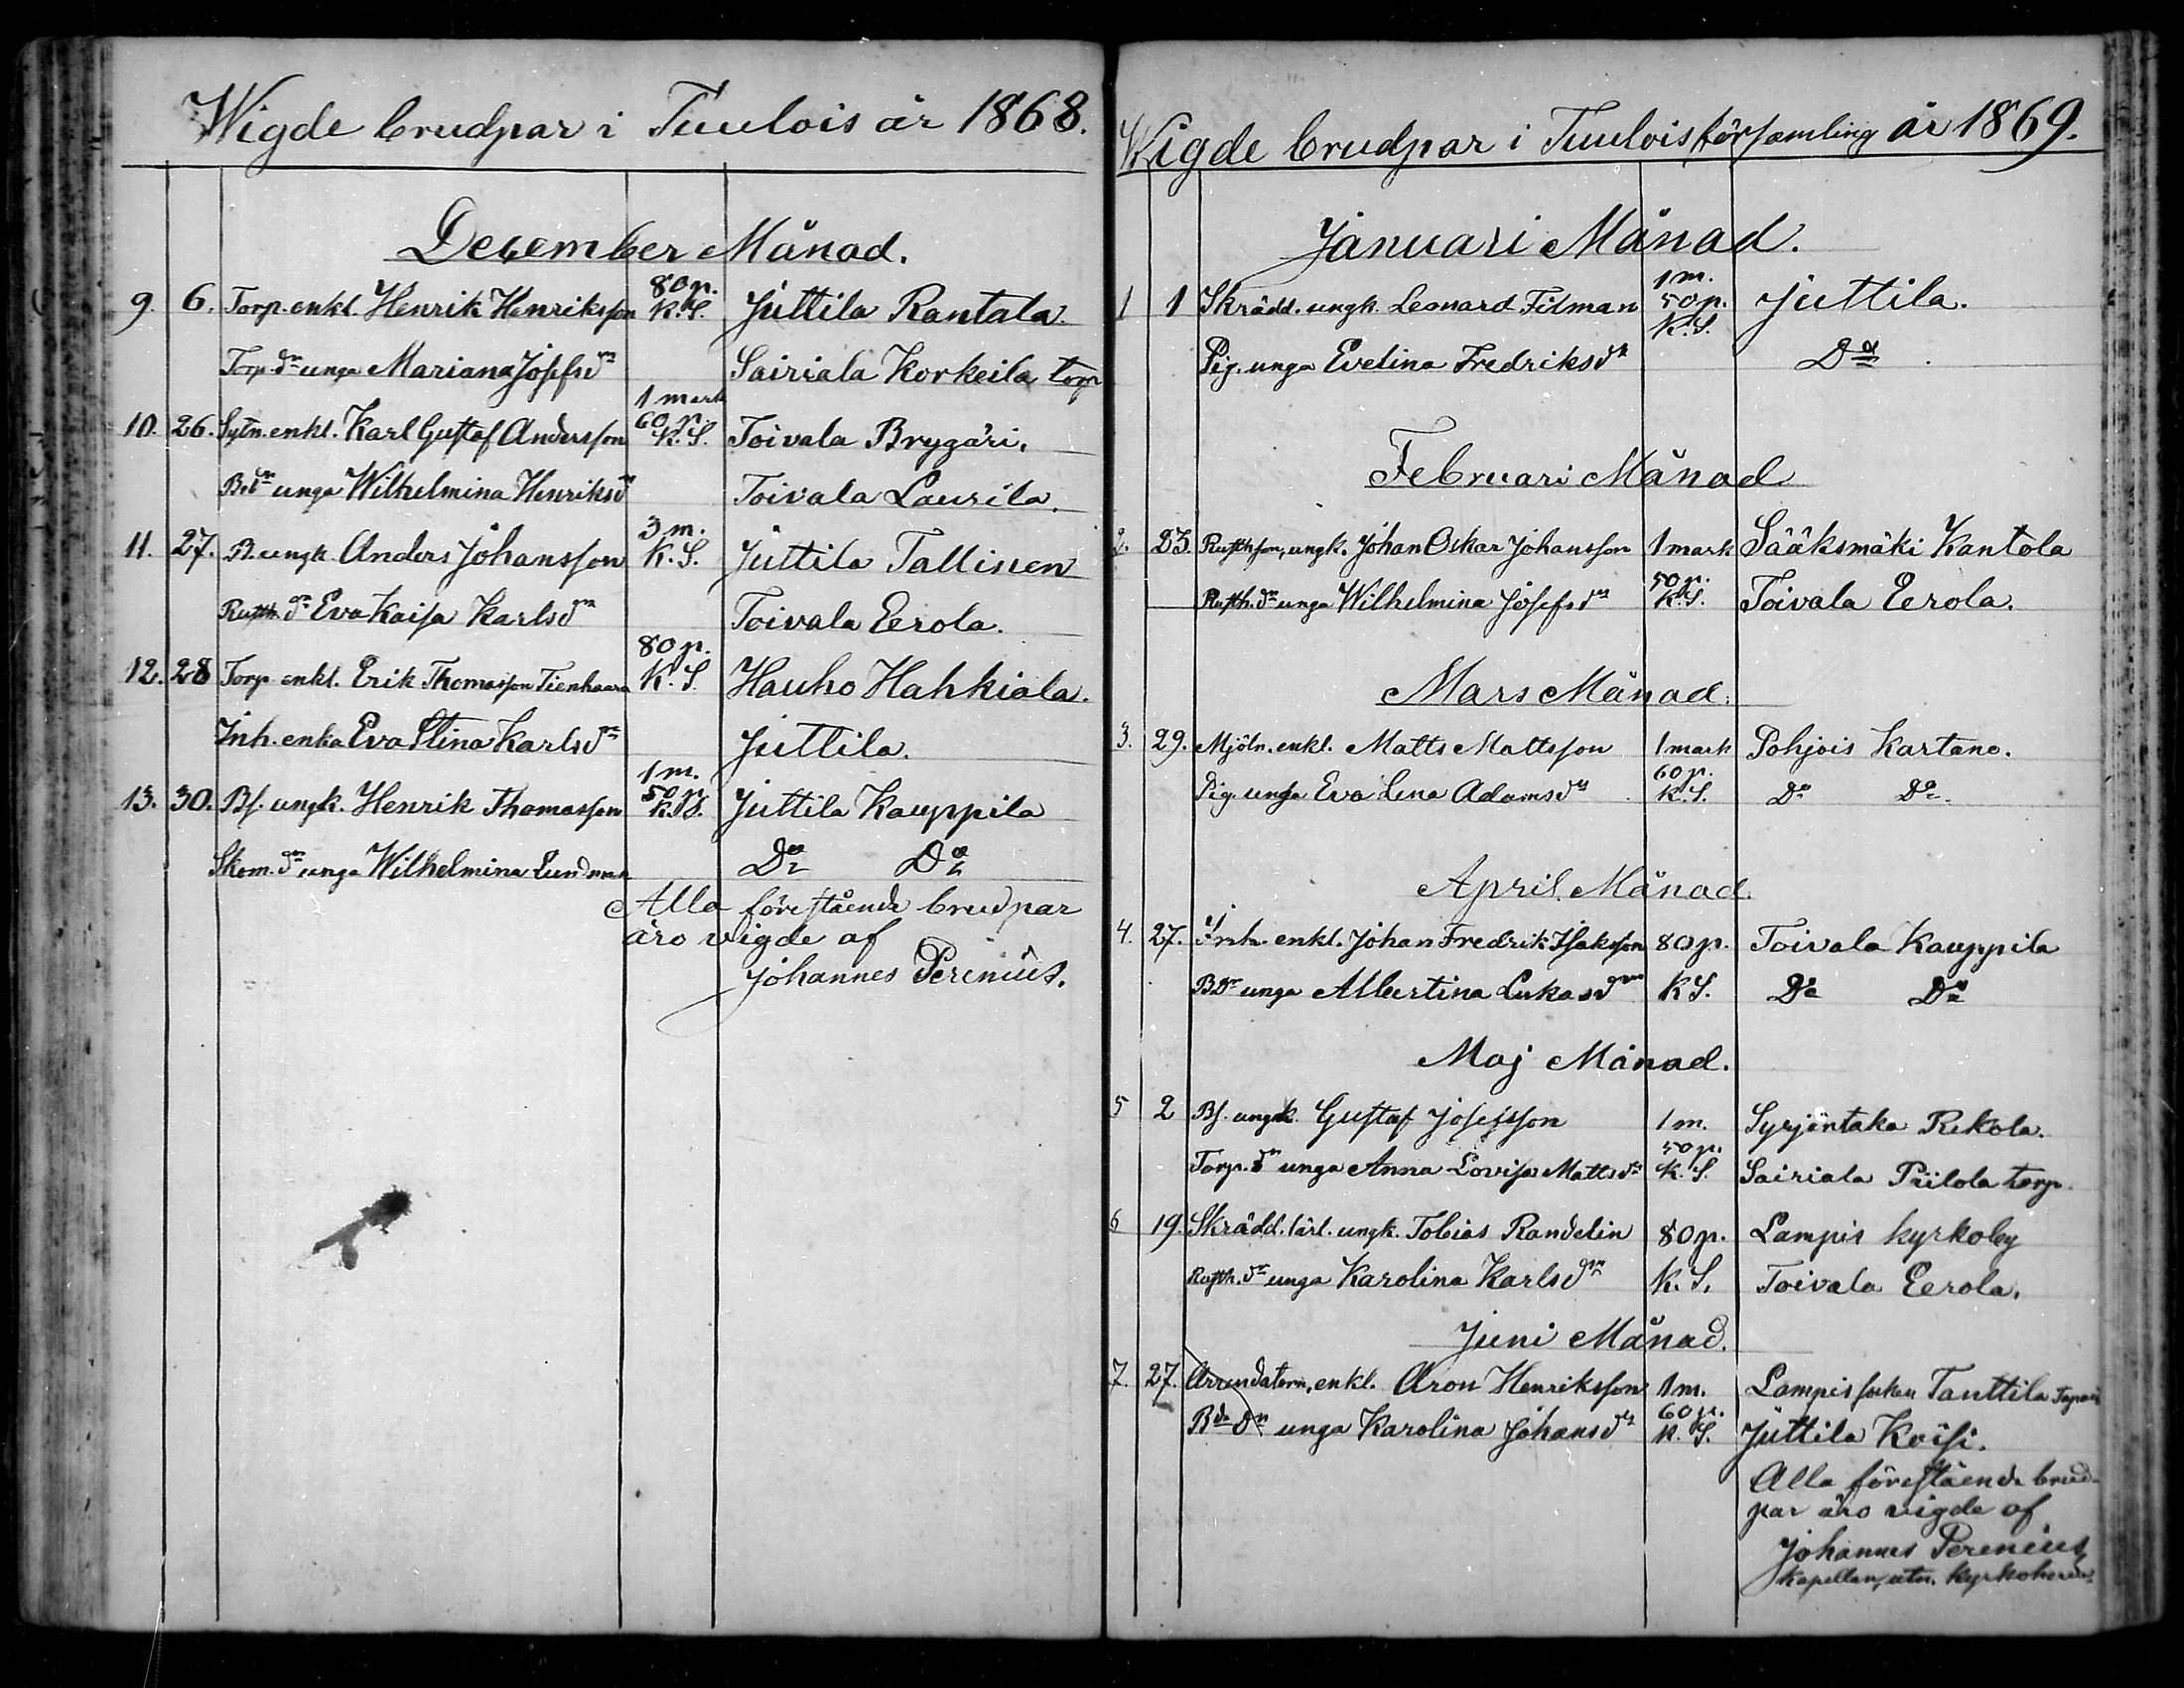 Wigde brudpar i Tuulois år 1868.
December Månad.
80 p.
9. 6. Torp. enkl. Henrik Henriksson K.S. Juttila Rantala
Torp. dr unga Mariana Josefsdr Sairiala Korkeila torp
1 mark
60 p.
10. 26. Sytn. enkl. Karl Gustaf Andersson K.S. Toivala Brygäri.
B.dr unga Wilhelmina Henriksdr Toivala Laurila.
3 m.
11. 27. B. ungk. Anders Johansson K.S. Juttila Tallinen
Rusth. dr Eva Kaisa Karlsdr Toivala Eerola.
80 p.
12. 28 Torp enkl. Erik Thomasson Tienhaara K.S. Hauho Hahkiala.
Inh. enka Eva Stina Karlsdr Juttila.
1 m.
50 p.
13. 30. Bs. ungk. Henrik Thomasson K.S. Juttila Kauppila
Skom. dr unga Wilhelmina Lundman Do Do
Alla förestående brudpar
äro vigde af
Johannes Perenius.
Wigde brudpar i Tuulois församling år 1869.
Januari Månad.
1 m.
1 1 Skrädd. ungk. Leonard Filman 50 p. Juttila.
K.S.
Pig. unga Evelina Fredriksdr Do
Februari Månad
2. 23. Rusthson, ungk. Johan Oskar Johansson 1 mark Sääksmäki Kantola
50 p.
Rusth. dr unga Wilhelmina Josefsdr K.S. Toivala Eerola.
Mars Månad.
3. 29. Mjöln. enkl. Matts Mattsson 1 mark Pohjois Kartano.
60 p.
Pig. unga Eva Lena Adamsdr K.S. Do Do.
April Månad.
4. 27. Inh. enkl. Johan Fredrik Isaksson 80 p. Toivala Kauppila
BDr unga Albertina Lukasdr K S. Do Do
Maj Månad.
5 2 Bs. ungk. Gustaf Josefsson 1 m. Syrjäntaka Rekola.
50 p.
Torp. dr unga Anna Lovisa Mattsdr K.S. Sairiala Piilola torp.
6 19. Skrädd. lärl. ungk. Tobias Randelin 80 p. Lampis kyrkoby
Rusth. dr unga Karolina Karlsdr K.S. Toivala Eerola.
Juni Månad.
7. 27. Arrendatorn, enkl. Aron Henriksson 1 m. Lampis socken Tanttila
60 p.
Bde Dr unga Karolina Johansdr K.S. Juttila Koisi.
Alla förestående brud-
par äro vigde af
Johannes Perenius
Kapellan, utn. kyrkoherde.